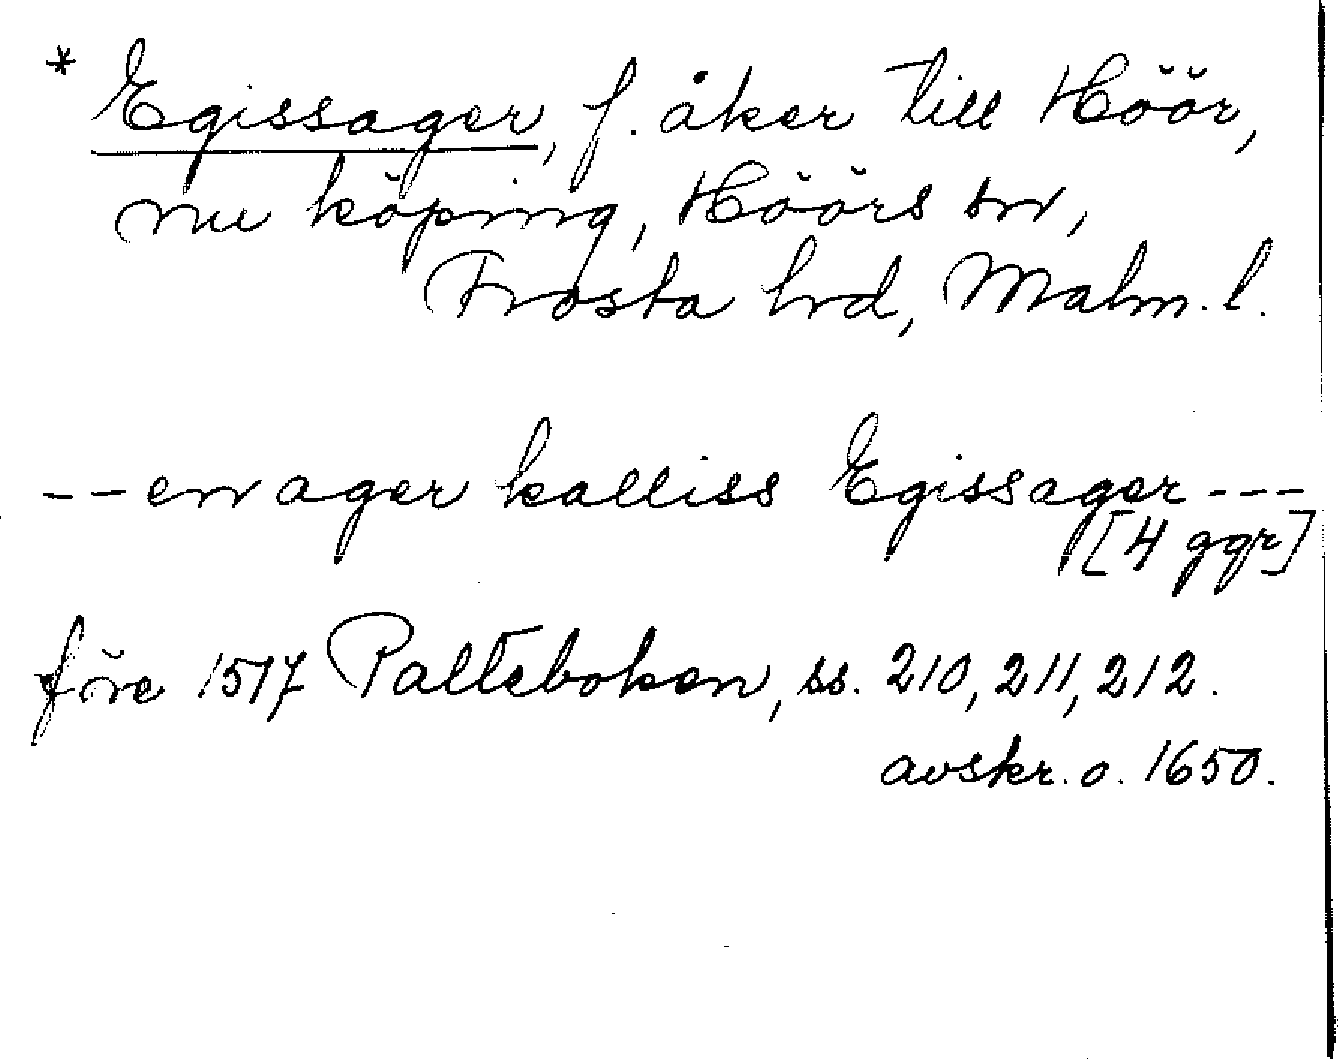 * Egissager, f. åker till Höör,
nu köping, Höörs sn,
Frosta hrd, Malm. l.
-- en ager kalliss Egissager ---
[4 ggr]
före 1517 Palteboken, ss. 210, 211, 212.
avskr. o. 1650.